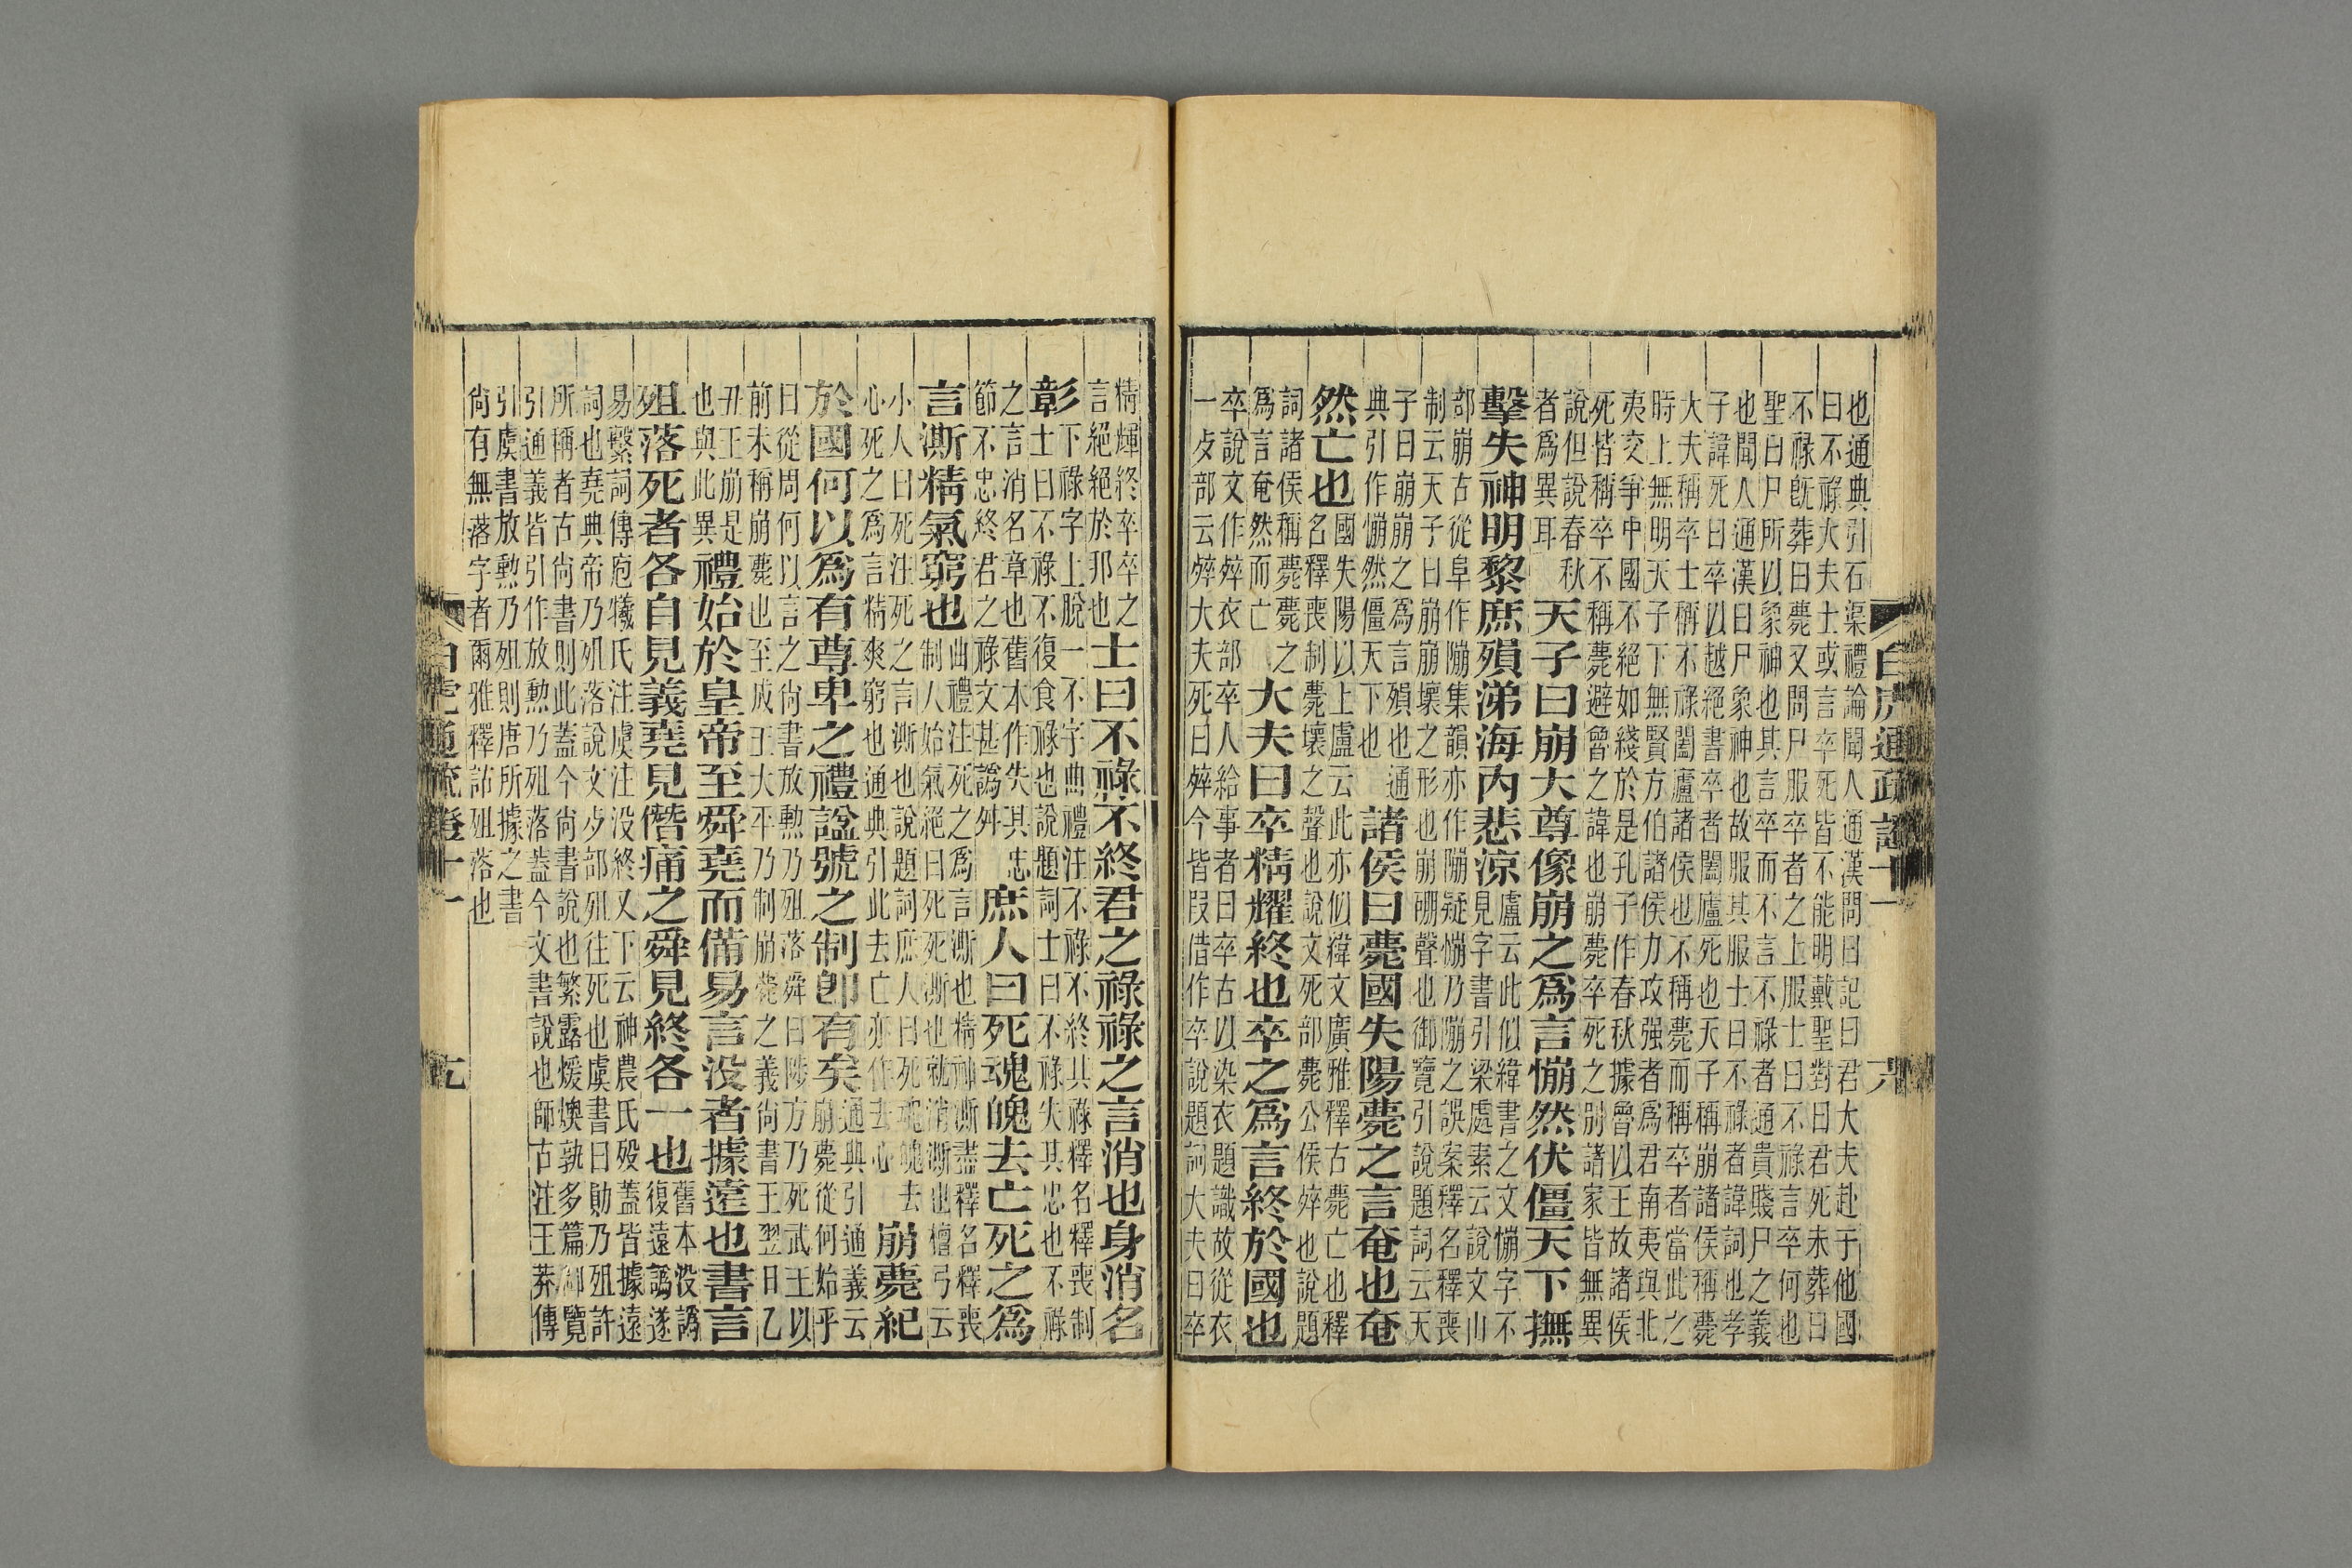 也通典引石渠禮論聞人通漢問曰記曰君大夫赴于他國
曰不祿大夫士或言卒死皆不能明戴聖對曰君死未葬曰
不祿既葬曰薨又問尸服卒者之上服士曰不祿言卒何也
聖曰尸所以象神也其言卒而不言不祿者通貴賤尸之義
也聞人通漢曰尸象神也故服其服士曰不祿者諱詞也孝
子諱死曰卒以越絕書卒者闔廬死也天子稱崩諸侯稱薨
大夫稱卒士稱不祿闔廬諸侯也不稱薨而稱卒者當此之
時上無明天子下無賢方伯諸侯力攻强者爲君南夷與北
夷交爭中國不絕如綫於是孔子作春秋據魯以王故諸侯
死皆稱卒不稱薨避魯之諱也崩薨卒死之別諸家皆無異
說但說春秋
者爲異耳
天子曰崩大尊像崩之爲言㥊然伏僵天下撫
擊失神明黎庶殞涕海内悲涼
盧云此似緯書之文㥊字不
見字書引梁處素云說文山
部崩古從阜作䧛集韻亦作䧛疑㥊乃䧛之誤案釋名釋喪
制云天子曰崩崩壞之形也崩硼聲也御覽引說題詞云天
子曰崩崩之爲言殞也通
典引作㥊然僵天下也
諸侯曰薨國失陽薨之言奄也奄
然亡也
國失陽以上盧云此亦似緯文廣雅釋古薨亡也釋
名釋喪制薨壞之聲也說文死部薨公侯䘹也說題
詞諸侯稱薨薨之
爲言奄然而亡
大夫曰卒精耀終也卒之爲言終於國也
卒說文作䘚衣部卒人給事者曰卒古以染衣題識故從衣
一歺部云䘹大夫死曰䘹今皆叚借作卒說題詞大夫曰卒
白虎通疏證十一
六
精輝終卒卒之
言絕絕於邦也
士曰不祿不終君之祿祿之言消也身消名
彰
下祿字上脫一不字曲禮注不祿不終其祿釋名釋喪制
士曰不祿不復食祿也說題詞士曰不祿失其忠也不祿
之言消名章也舊本作失其忠
節不忠終君之祿文甚譌舛
庶人曰死魂魄去亡死之爲
言澌精氣窮也
曲禮注死之爲言澌也精神澌盡釋名釋喪
制人始氣絕曰死死澌也就消澌也檀弓云
小人曰死注死之言澌也說題詞庶人曰死魂魄去
心死之爲言精爽窮也通典引此去亡亦作去心
崩薨紀
於國何以爲有尊卑之禮諡號之制卽有矣
通典引通義云
崩薨從何始乎
曰從周何以言之尚書放勲乃殂落舜曰陟方乃死武王以
前未稱崩薨也至成王大平乃制崩薨之義尚書王翌日乙
丑王崩是
也與此異
禮始於皇帝至舜堯而備易言没者據遠也書言
殂落死者各自見義堯見憯痛之舜見終各一也
舊本没譌
復遠譌遂
易繫詞傳庖犧氏注虞注没終又下云神農氏殁蓋皆據遠
詞也堯典帝乃殂落說文歺部殂往死也虞書曰勛乃殂許
所稱者古尚書則此蓋今尚書說也繁露煖燠孰多篇御覽
引通義皆引作放勲乃殂落蓋今文書說也師古注王莽傳
引虞書放勲乃殂則唐所據之書
尚有無落字者爾雅釋詁殂落也